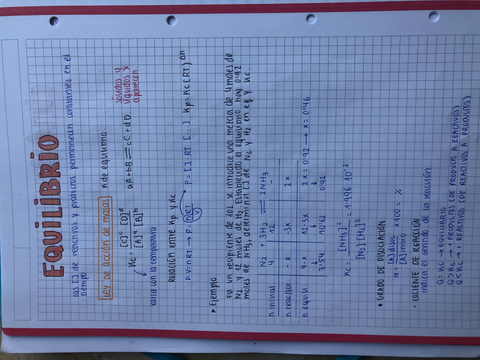 EQUILIBRIO
las [] de reactivos y productos permanecen constantes en el
tiempo
Ley de acción de masas K de equilibrio
aA + bB ⇌ cC + dD
Kc = [C]^c [D]^d / [A]^a [B]^b
sólidos y
líquidos X
aparecen
varía con la temperatura
Relación entre Kp y Kc
P·V = nRT → P = nRT/V → P = [] · RT [...] Kp = Kc (RT)^Δn
Ejemplo
En un recipiente de 10L se introduce una mezcla de 4 moles de
N2 y 12 moles de H2. Establecido el equilibrio hay 0.92
moles de NH3, determina [] de N2 y H2 en eq y Kc
N2 + 3H2 ⇌ 2NH3
n inicial 4 12 -
n reaccion -x -3x 2x
n equilib 4-x 12-3x 2x = 0.92 → x = 0.46
3.54 10.62 0.92
Kc = [NH3]² / [N2][H2]³ = 1.996·10^-2
• GRADO DE DISOCIACIÓN
x100 = %
• COCIENTE DE REACCIÓN
indica el sentido de la reacción
Q = Kc → EQUILIBRIO
Q > Kc → ↑ PRODUCTO (DE PRODUCTO A REACTIVOS)
Q < Kc → ↑ REACTIVO (DE REACTIVO A PRODUCTO)